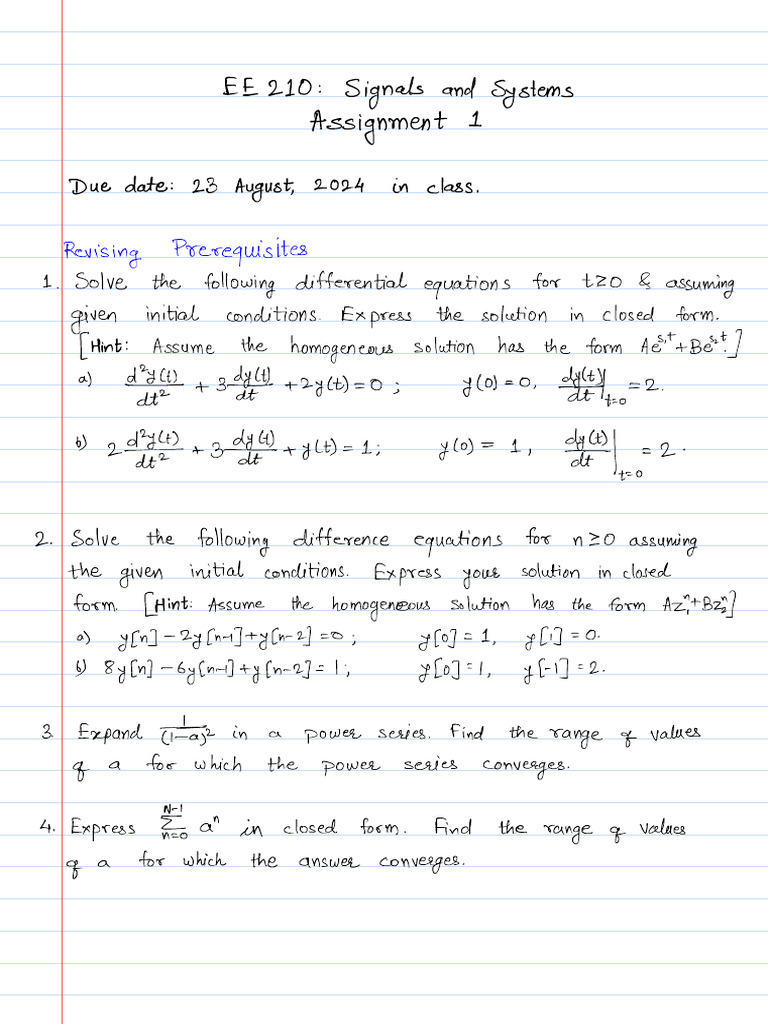 EE 210: Signals and Systems
Assignment 1
Due date: 23 August, 2024 in class.
Revising Prerequisites
1. Solve the following differential equations for t≥0 & assuming
given initial conditions. Express the solution in closed form.
[Hint: Assume the homogeneous solution has the form Ae^{s₁t}+Be^{s₂t}.]
a) d²y(t)/dt² + 3 dy(t)/dt + 2y(t) = 0 ; y(0) = 0, dy(t)/dt|t=0 = 2.
b) 2 d²y(t)/dt² + 3 dy(t)/dt + y(t) = 1; y(0) = 1, dy(t)/dt|t=0 = 2.
2. Solve the following difference equations for n≥0 assuming
the given initial conditions. Express your solution in closed
form. [Hint: Assume the homogeneous solution has the form Az₁ⁿ+Bz₂ⁿ]
a) y[n] – 2y[n-1] + y[n-2] = 0 ; y[0] = 1, y[1] = 0.
b) 8y[n] – 6y[n-1] + y[n-2] = 1 ; y[0] = 1, y[-1] = 2.
3. Expand 1/(1-a)² in a power series. Find the range of values
of a for which the power series converges.
4. Express Σ_{n=0}^{N-1} aⁿ in closed form. Find the range of values
of a for which the answer converges.